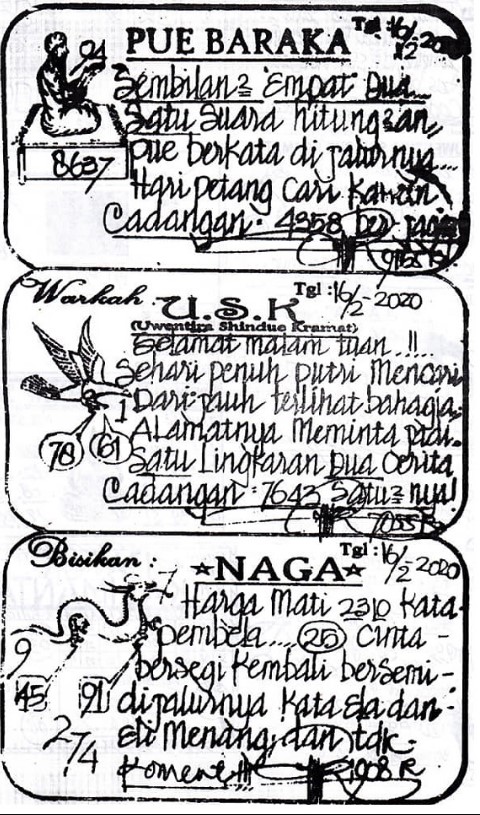 PUE BARAKA
Tgl : 16/2-2020
Sembilan2 Empat Dua...
Satu Suara hitung2an,,
pue berkata di jalurnya....
8637
Hari petang cari
Cadangan : 4358
Warkah :
U.S.K
Tgl : 16/2-2020
(Uwentira Shindue Kramat)
Selamat malam tuan..!!....
Sehari penuh putri Mencari
Dari jauh terlihat bahagia,
1
78 61
ALamatnya Meminta
Satu Lingkaran Dua Cerita
Cadangan : 7643 Satu2 nya!
7055 R
Bisikan :
NAGA
Tgl : 16/2-2020
7
Harga Mati 2310 Kata-
pembela.... 25 Cinta -
9
bersegi Kembali bersemi -
45 91
dijalurnya Kata Ela dan -
Eli Menang, dan tdk
274
Koment !!!
1908 R